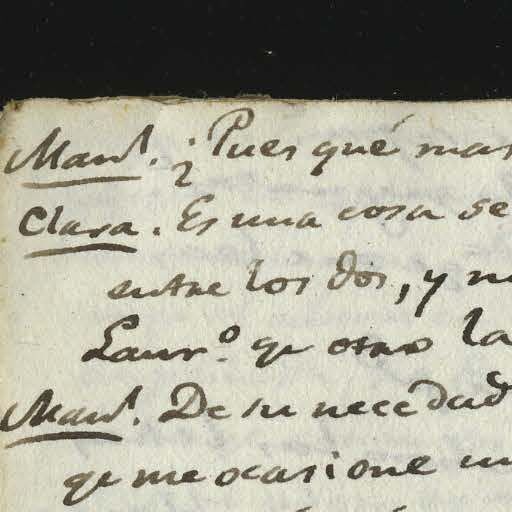 Manl. ¿Pues qué mas
Clara. Es una cosa se
entre los dos, y n
Laur.º qe otro la
Manl. De su necedad
qe me ocasione un